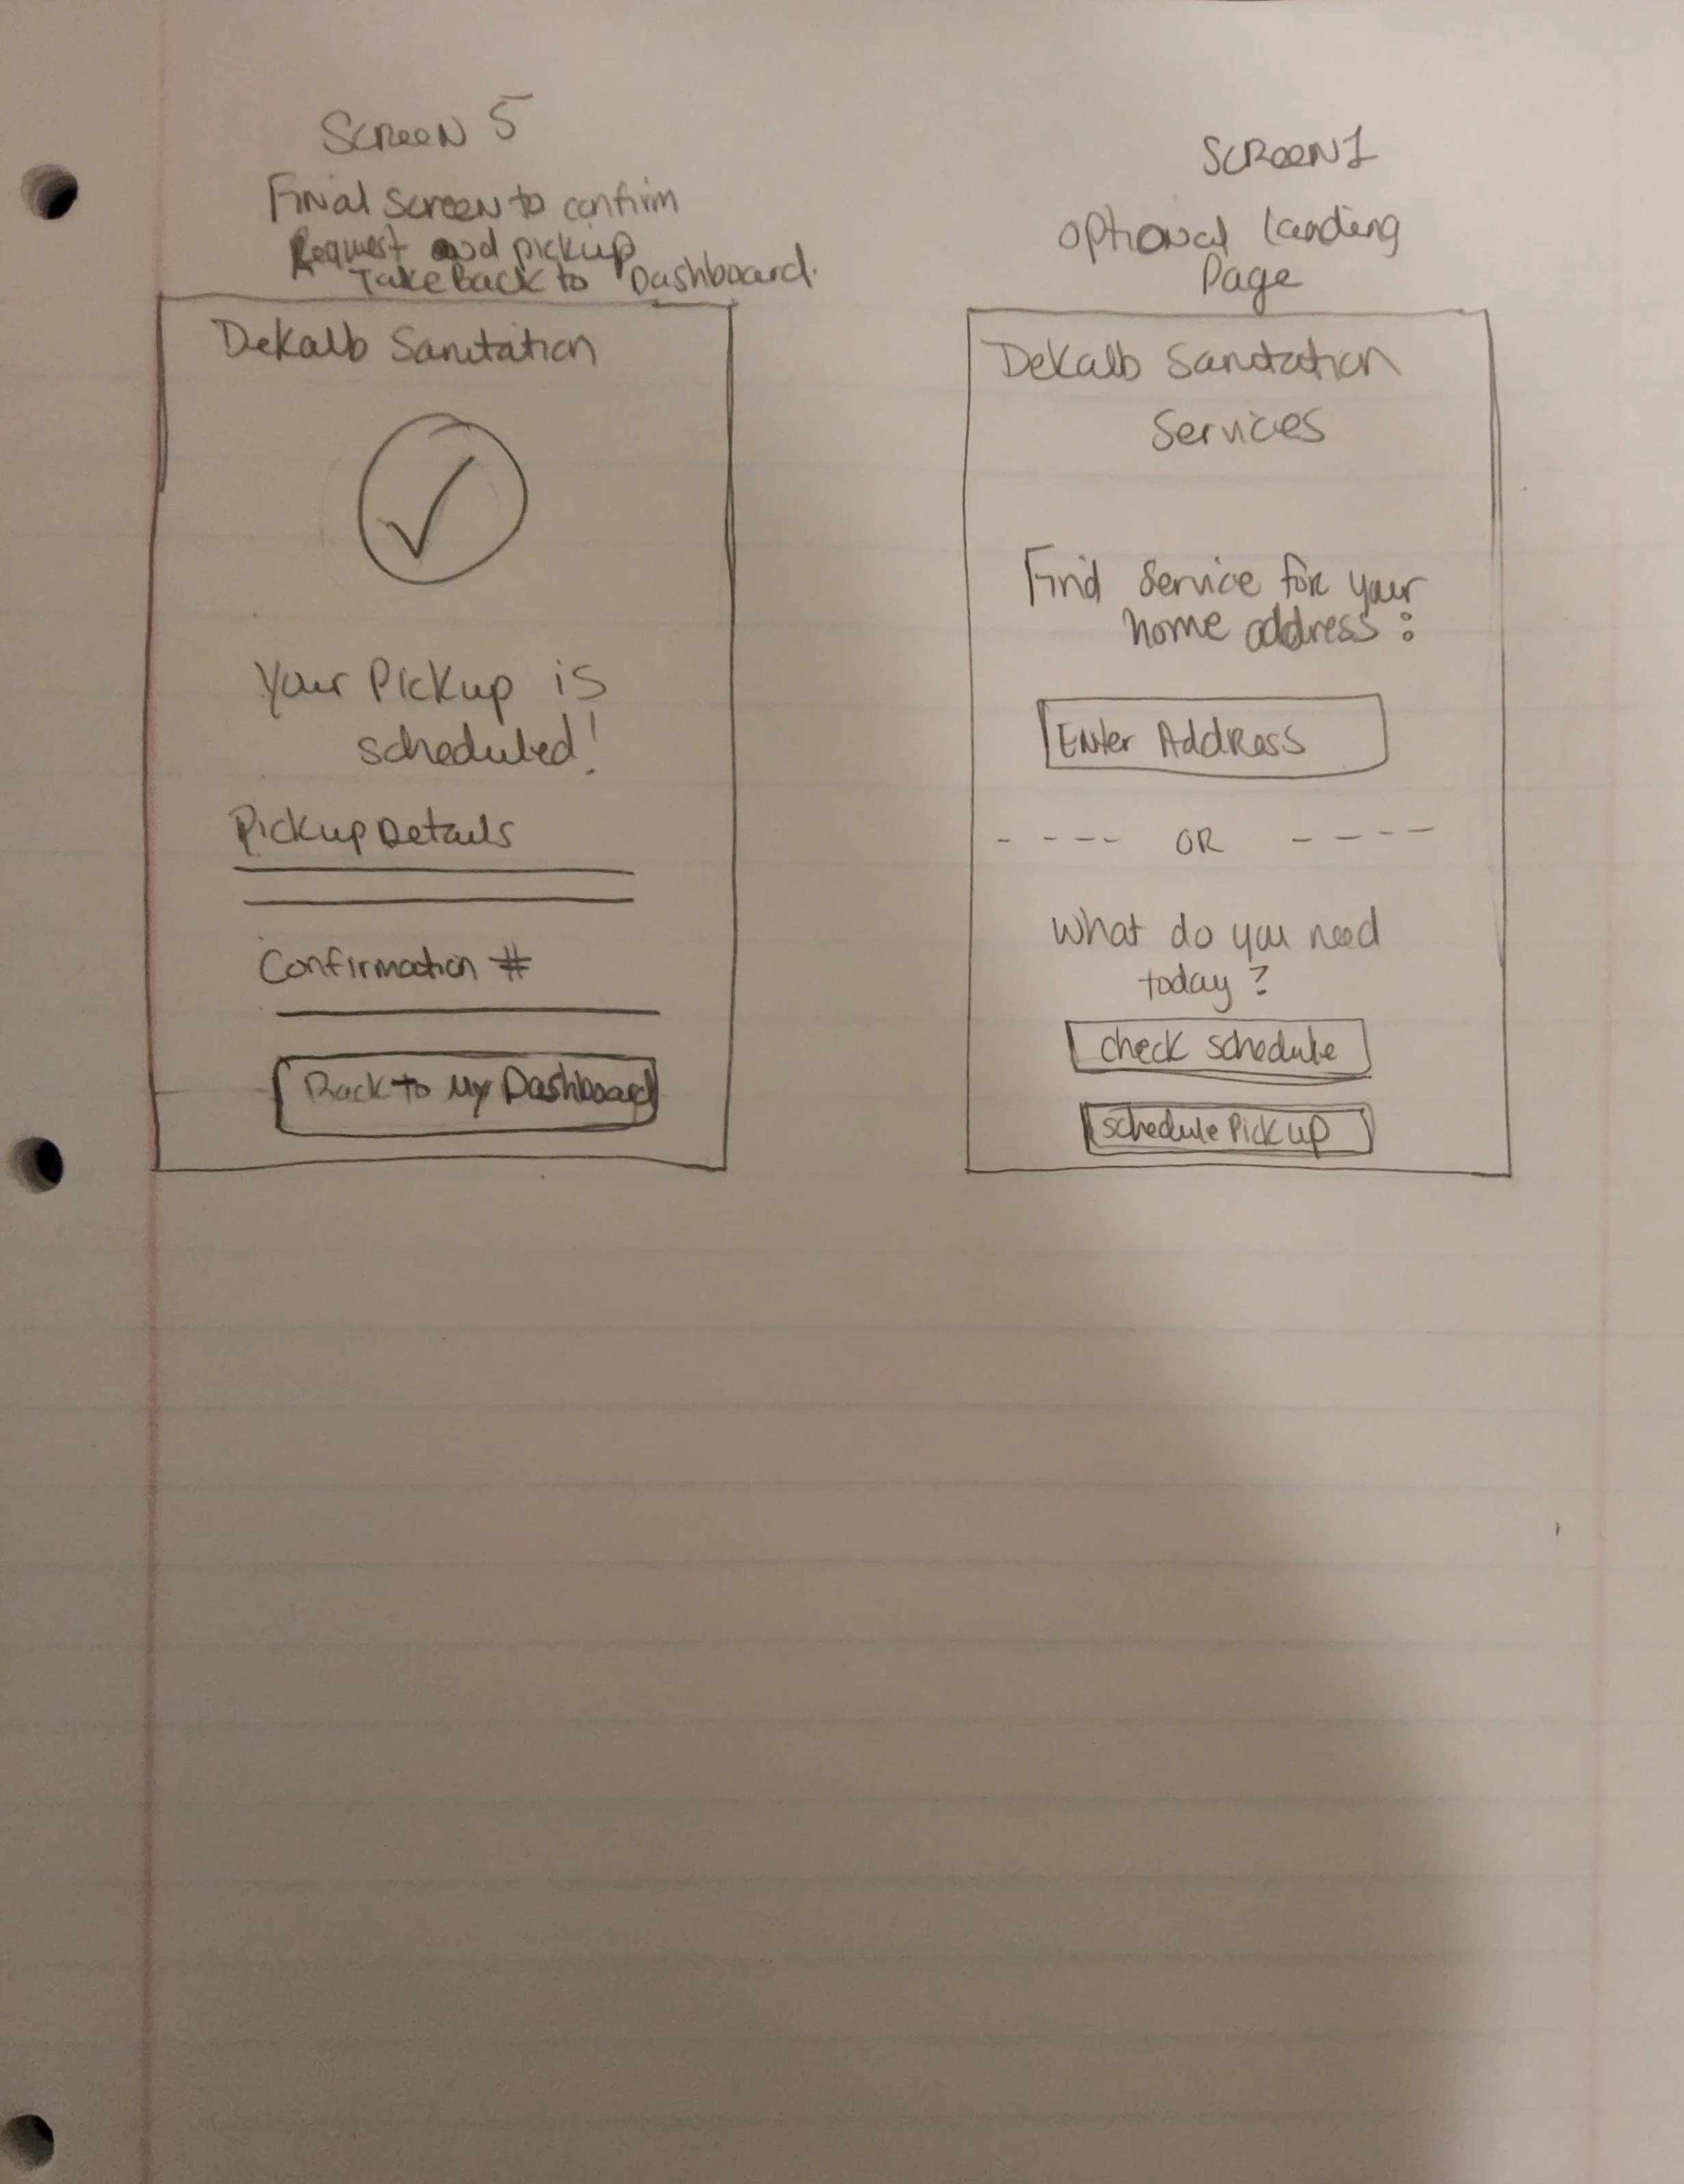 Screen 5
Final Screen to confirm
Request and pickup
Take Back to Dashboard.
DeKalb Sanitation
Your Pickup is
scheduled!
Pickup Details
Confirmation #
Back to My Dashboard
Screen 1
optional landing
Page
DeKalb Sanitation
Services
Find Service for your
home address:
Enter Address
---- OR ----
What do you need
today?
check schedule
schedule Pickup